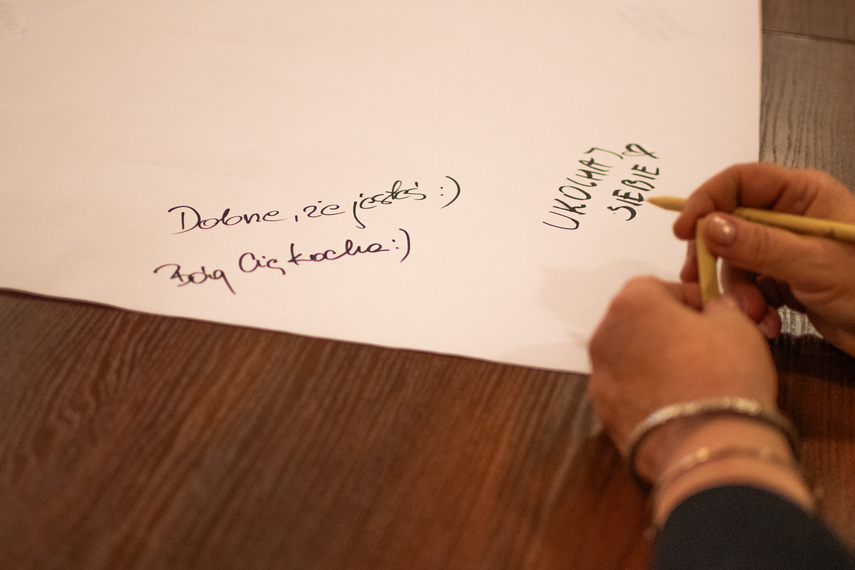 Dobrze, że jesteś :)
Bóg Cię kocha :)
UKOCHAJ
SIEBIE